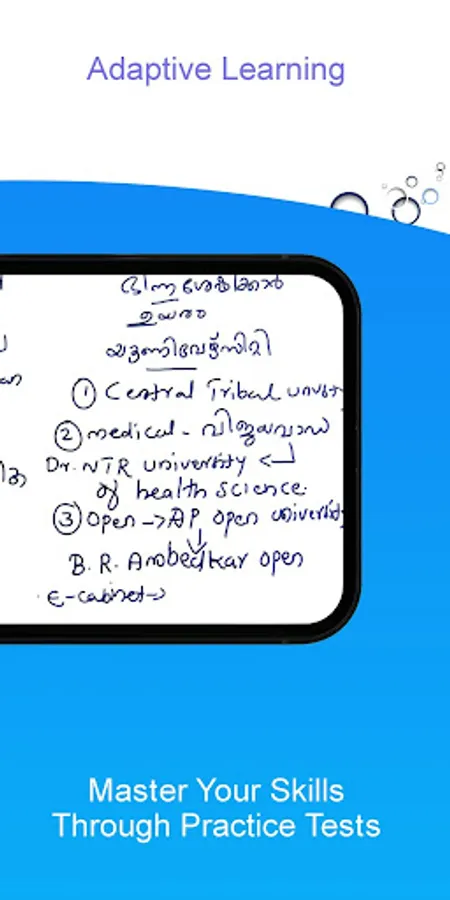 Adaptive Learning
ഭിന്നശേഷിക്കാർ
ഉയരം
യൂണിവേഴ്സിറ്റി
① Central Tribal
② medical - വിജയവാഡ
Dr. NTR university
of health science.
③ Open → AP open university
B. R. Ambedkar open
E-cabinet →
Master Your Skills
Through Practice Tests